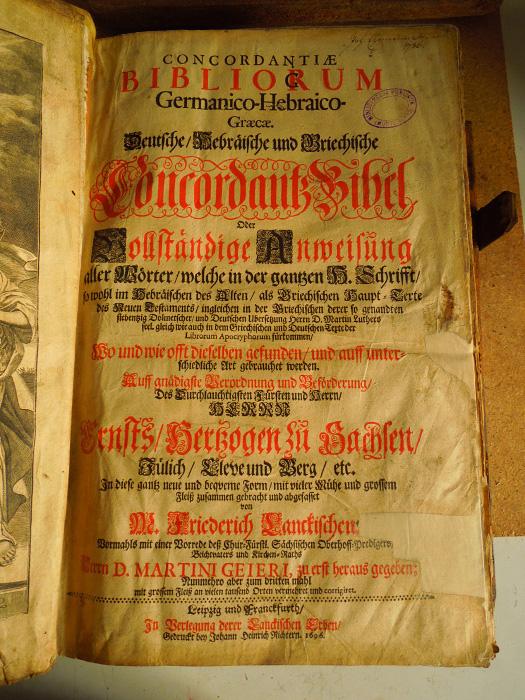 CONCORDANTIÆ
BIBLIORUM
Germanico-Hebraico-
Græcæ.
Deutsche/Hebräische und Griechische
Concordantz-Bibel
Oder
Vollständige Anweisung
aller Wörter/welche in der gantzen H. Schrifft/
sowohl im Hebräischen des Alten/als Griechischen Haupt-Texte
des Neuen Testaments/ingleichen in der Griechischen derer so genandten
siebentzig Dolmetscher/und Deutschen Ubersetzung Herrn D. Martin Luthers
seel. gleich wie auch in dem Griechischen und Deutschen Texte der
Librorum Apocryphorum fürkommen/
Wo und wie offt dieselben gefunden/und auff unter-
schiedliche Art gebrauchet werden.
Auff gnädigste Verordnung und Beförderung/
Des Durchlauchtigsten Fürsten und Herrn/
HERRN
Ernsts/Hertzogen zu Sachsen/
Jülich/Cleve und Berg/etc.
In diese gantz neue und beqveme Form/mit vieler Mühe und grossem
Fleiß zusammen gebracht und abgefasset
von
M. Friederich Lanckischen/
Vormahls mit einer Vorrede deß Chur-Fürstl. Sächsischen Oberhoff-Predigers/
Beichtvaters und Kirchen-Raths
Herrn D. MARTINI GEIERI, zu erst heraus gegeben;
Nunmehro aber zum dritten mahl
mit grossem Fleiß an vielen tausend Orten vermehret und corrigiret.
Leipzig und Franckfurth/
In Verlegung derer Lanckischen Erben/
Gedruckt bey Johann Heinrich Richtern. 1696.